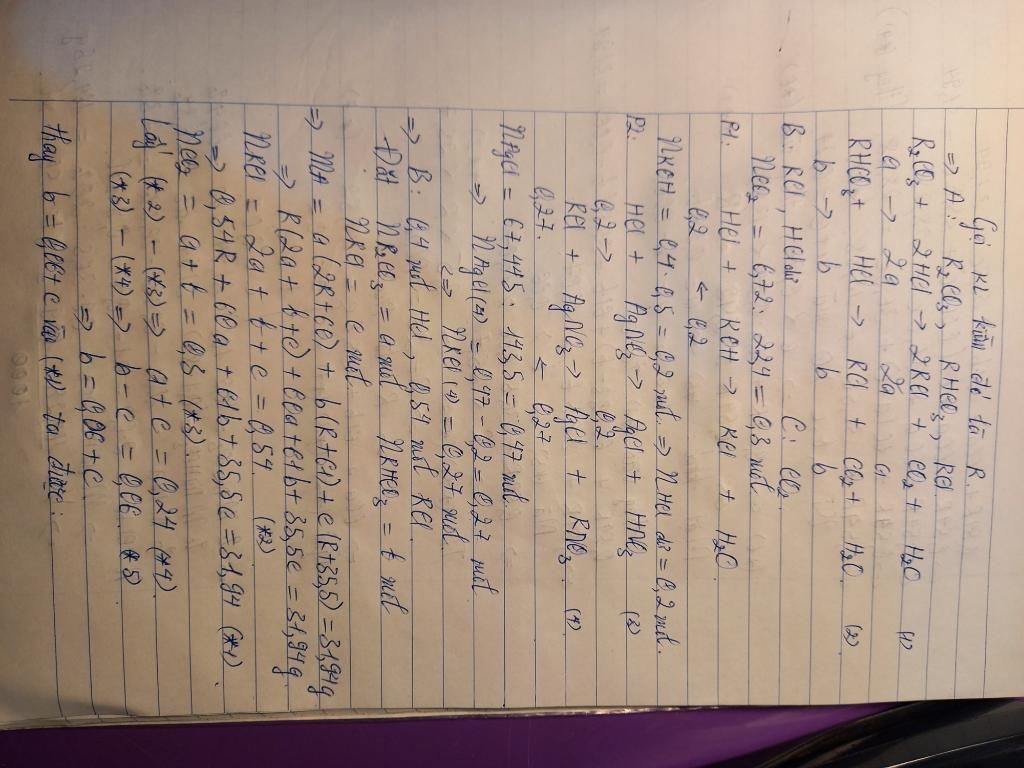 Gọi KL kiềm đó là R.
=> A: R₂CO₃, RHCO₃, RCl
R₂CO₃ + 2HCl → 2RCl + CO₂ + H₂O (1)
a → 2a 2a a
RHCO₃ + HCl → RCl + CO₂ + H₂O (2)
b → b b b
B: RCl, HCl dư C: CO₂
nCO₂ = 6,72 : 22,4 = 0,3 mol.
P1: HCl + KOH → KCl + H₂O
0,2 ← 0,2
nKOH = 0,4 . 0,5 = 0,2 mol => nHCl dư = 0,2 mol.
P2: HCl + AgNO₃ → AgCl + HNO₃ (3)
0,2 → 0,2
RCl + AgNO₃ → AgCl + RNO₃ (4)
0,27. ← 0,27
nAgCl = 67,445 : 143,5 = 0,47 mol.
=> nAgCl(4) = 0,47 - 0,2 = 0,27 mol
<=> nRCl(4) = 0,27 mol.
=> B: 0,4 mol HCl, 0,54 mol RCl
- Đặt nR₂CO₃ = a mol nRHCO₃ = b mol
nRCl = c mol
=> mA = a(2R+60) + b(R+61) + c(R+35,5) = 31,94g
=> R(2a + b + c) + 60a + 61b + 35,5c = 31,94g
nRCl = 2a + b + c = 0,54 (*2)
=> 0,54R + 60a + 61b + 35,5c = 31,94 (*1).
nCO₂ = a + b = 0,3 (*3)
Lấy (*2) - (*3) => a + c = 0,24 (*4)
(*3) - (*4) => b - c = 0,06 (*5)
=> b = 0,06 + c
thay b = 0,06 + c vào (*1) ta được: